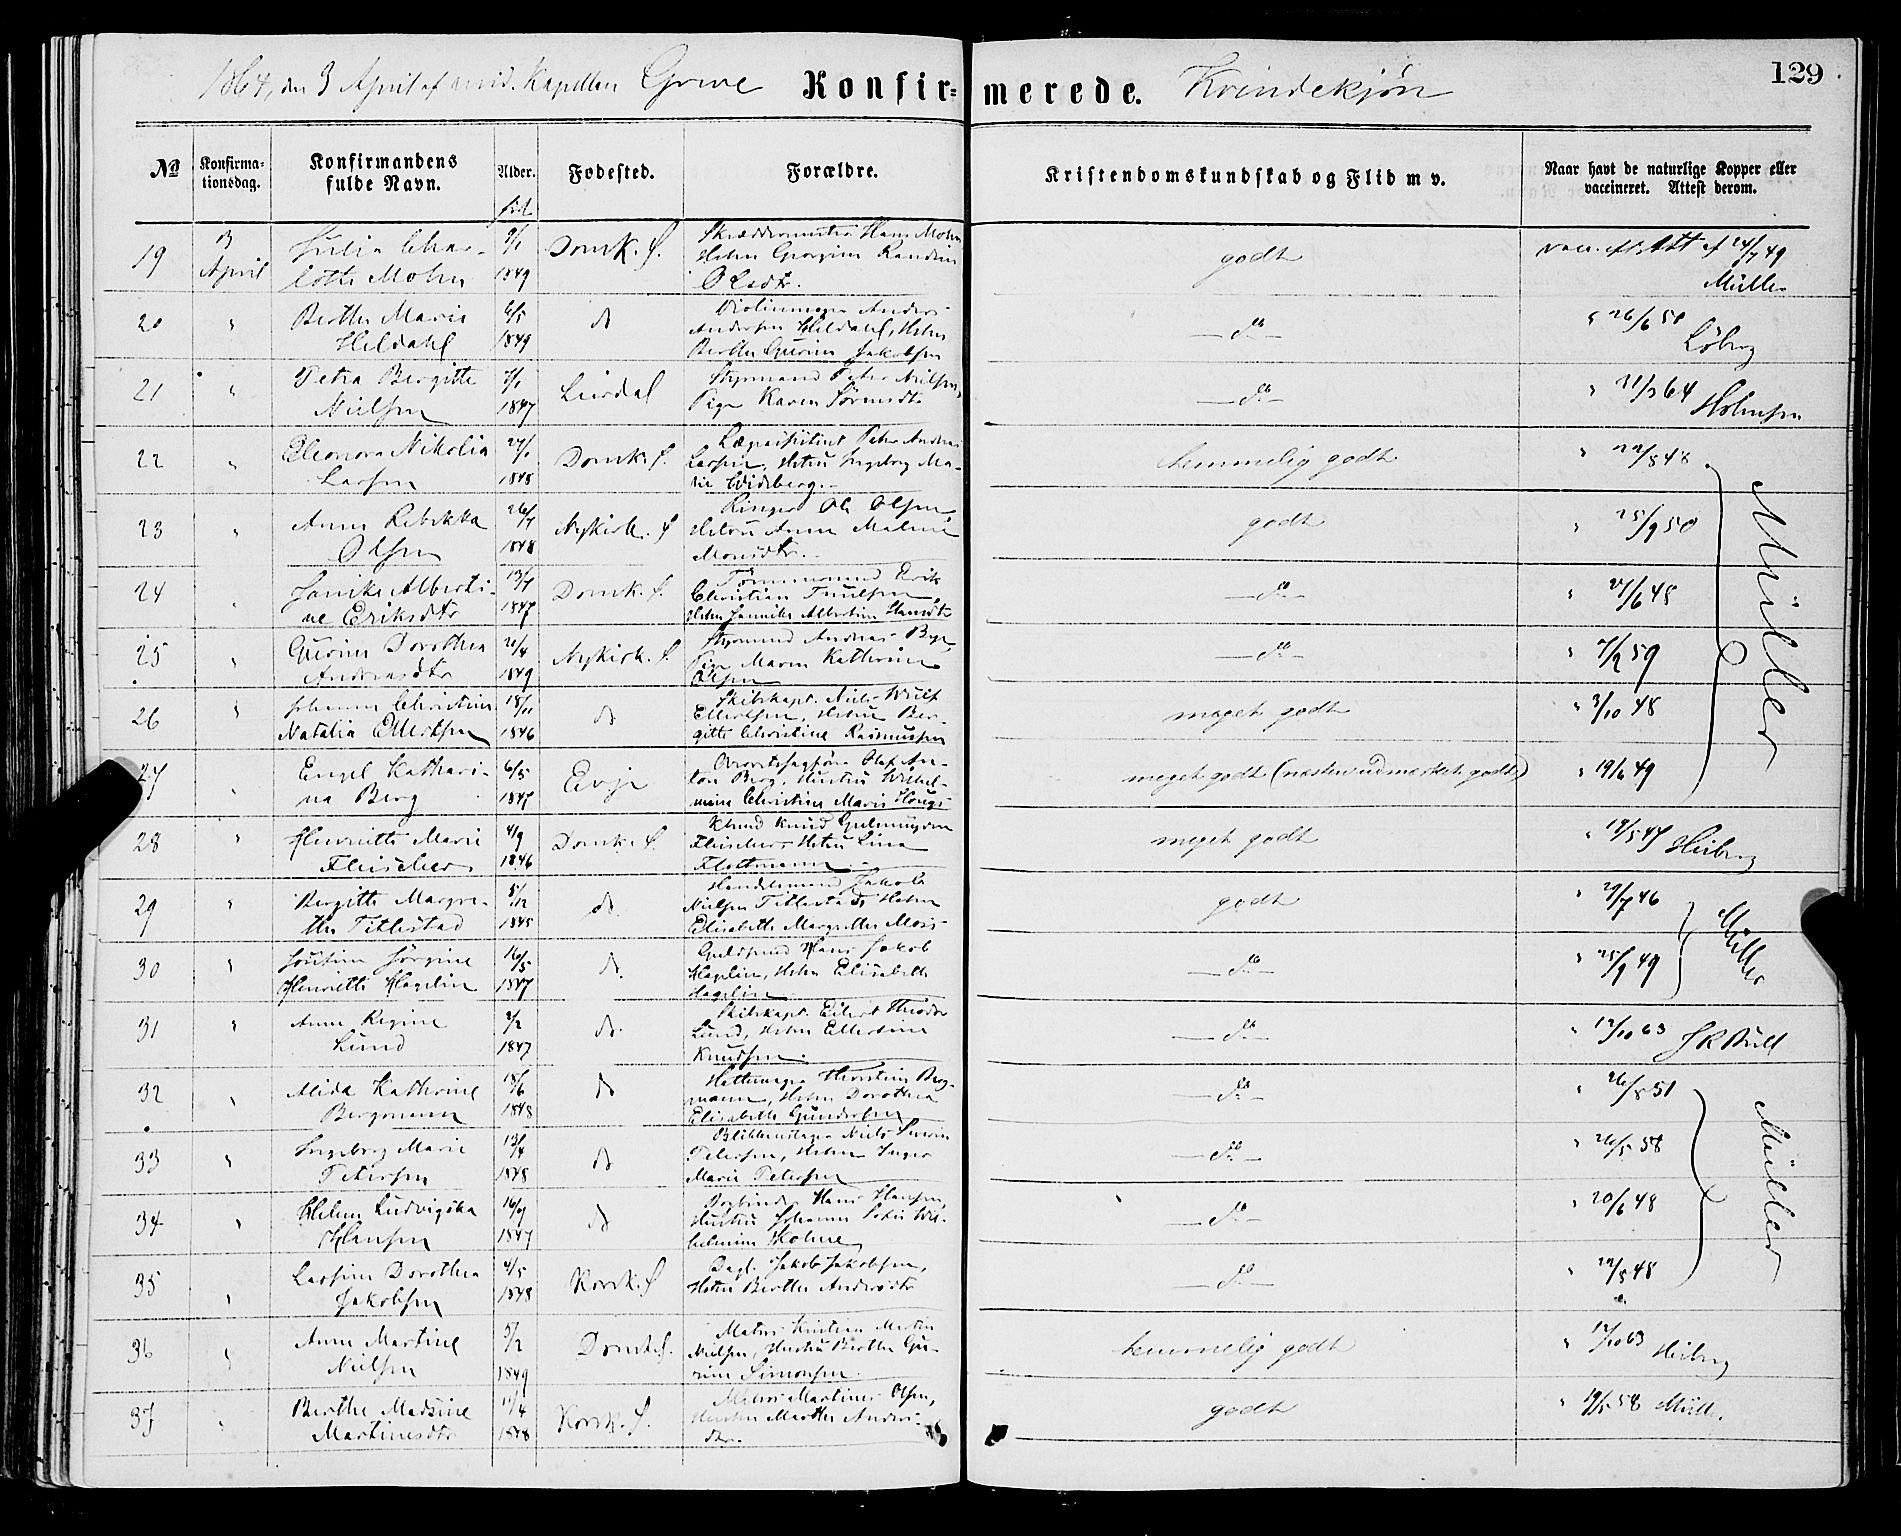 1864, den 3 April af Kapellan Greve Konfir= merede. Kvindekjøn 129
No Konfirma-tionsdag. Konfirmandens fulde Navn. Alder. Fødested. Forældre. Kristendomskundskab og Flid m v. Naar havt de naturlige Kopper eller vaccineret. Attest derom.
fød
19 3 April Julia Char-
lotte Mohn 9/1 1849 Domk. S. Skræddermester Hans Mohn
Hstru Georgine Randine
Olsdtr. godt vacc. Att af 24/7 49
Müller
20 " Berthe Marie
Hildahl 6/5 1849 do Anders
Andersen Hildahl, Hstru
Berthe Gurine Jakobsen do " 26/6 50
Löberg
21 " Petra Bergitte
Nielsen 7/1 1847 Leirdal Styrmand Peter Nielsen,
Pige Karen do " 21/3 64 Holmsen
22 " Eleonora Nikolia
Larsen 27/1 1848 Domk. S. Peter Andreas
Larsen, Hstru Ingeborg Ma-
rie Widberg. temmelig godt " 22/8 48
23 " Anna Rebekka
Olsen 26/7 1848 Nykirk. S Ringer Ole Olsen,
Hstru Anne Malene
Monsdtr. godt " 25/9 50
24 " Janike Alberti-
ne Eriksdtr 13/7 1847 Domk. S. Tømmermand Erik
Christian
Hstru Jannike Albertine Hansdtr do " 27/6 48
25 " Gurine Dorothea
Andreasdtr 20/4 1849 Nykirk. S. Styrmand Andreas
Pige Maren Kathrine
Olsen do " 7/2 59
26 " Johanne Christine
Natalia Ellertsen 18/11 1846 do Skibskapt. Niels Wulf
Ellertsen, Hstru Ber-
gitte Christine Rasmussen meget godt " 3/10 48
27 " Engel Kathari-
na Berg 6/5 1847 Evje Overretssagfører Olaf An-
ton Berg, Hustru Wilhel-
mine Christine Marie Houge meget godt (næsten udmærket godt) " 19/6 49
Müller
28 " Henriette Marie
Fleischer 4/9 1846 Domk. S. Kbmd Knud
Fleischer, Hstru Lina
Flottmann meget godt " 18/5 47 Heiberg
29 " Bergitte Margre-
the Titlestad 5/12 1845 do. Handelsmand Jakob
Nielsen Titlestad, Hstru
Elisabeth Margrethe godt " 29/7 46
30 " Justine Jørgine
Henriette Hagelin 16/5 1847 do. Guldsmed Hans Jakob
Hagelin, Hstru Elisabeth
Hagelin do " 25/9 49
Müller
31 " Anne Regine
Lund 2/2 1847 do. Skibskapt. Eilert Theodor
Lund, Hstru Ellertine
Knudsen. do " 12/10 63 J K Bull
32 " Alida Kathrine
Bergmann 18/6 1848 do Hattemager Thorstein Berg-
mann, Hstru Dorothea
Elisabeth Gundersen do " 26/8 51
33 " Ingeborg Marie
Petersen 13/4 1848 do Blikkenslager Niels
Petersen, Hstru Inger
Marie Petersen do " 26/5 58
34 " Helene Ludvigika
Hansen 16/9 1847 do Bogbinder Hans Hansen,
Hustru Johanne Wil-
helmine do " 20/6 48
35 " Larsine Dorothea
Jakobsen 4/5 1848 Korsk. S Dagl. Jakob Jakobsen,
Hstru Berthe Andersdtr do " 22/8 48
Müller
36 " Anne Martine
Nielsen 5/2 1849 Domk. S. Matros Kristian Martin
Nielsen, Hustru Berthe Gu-
rine Simonsen. temmelig godt " 12/10 63 Heiberg
37 " Berthe Madsine
Martinesdtr 11/4 1848 Korsk. S. Martines Olsen,
Hustru Marthe Anders-
dtr. godt " 19/5 58 Müll.